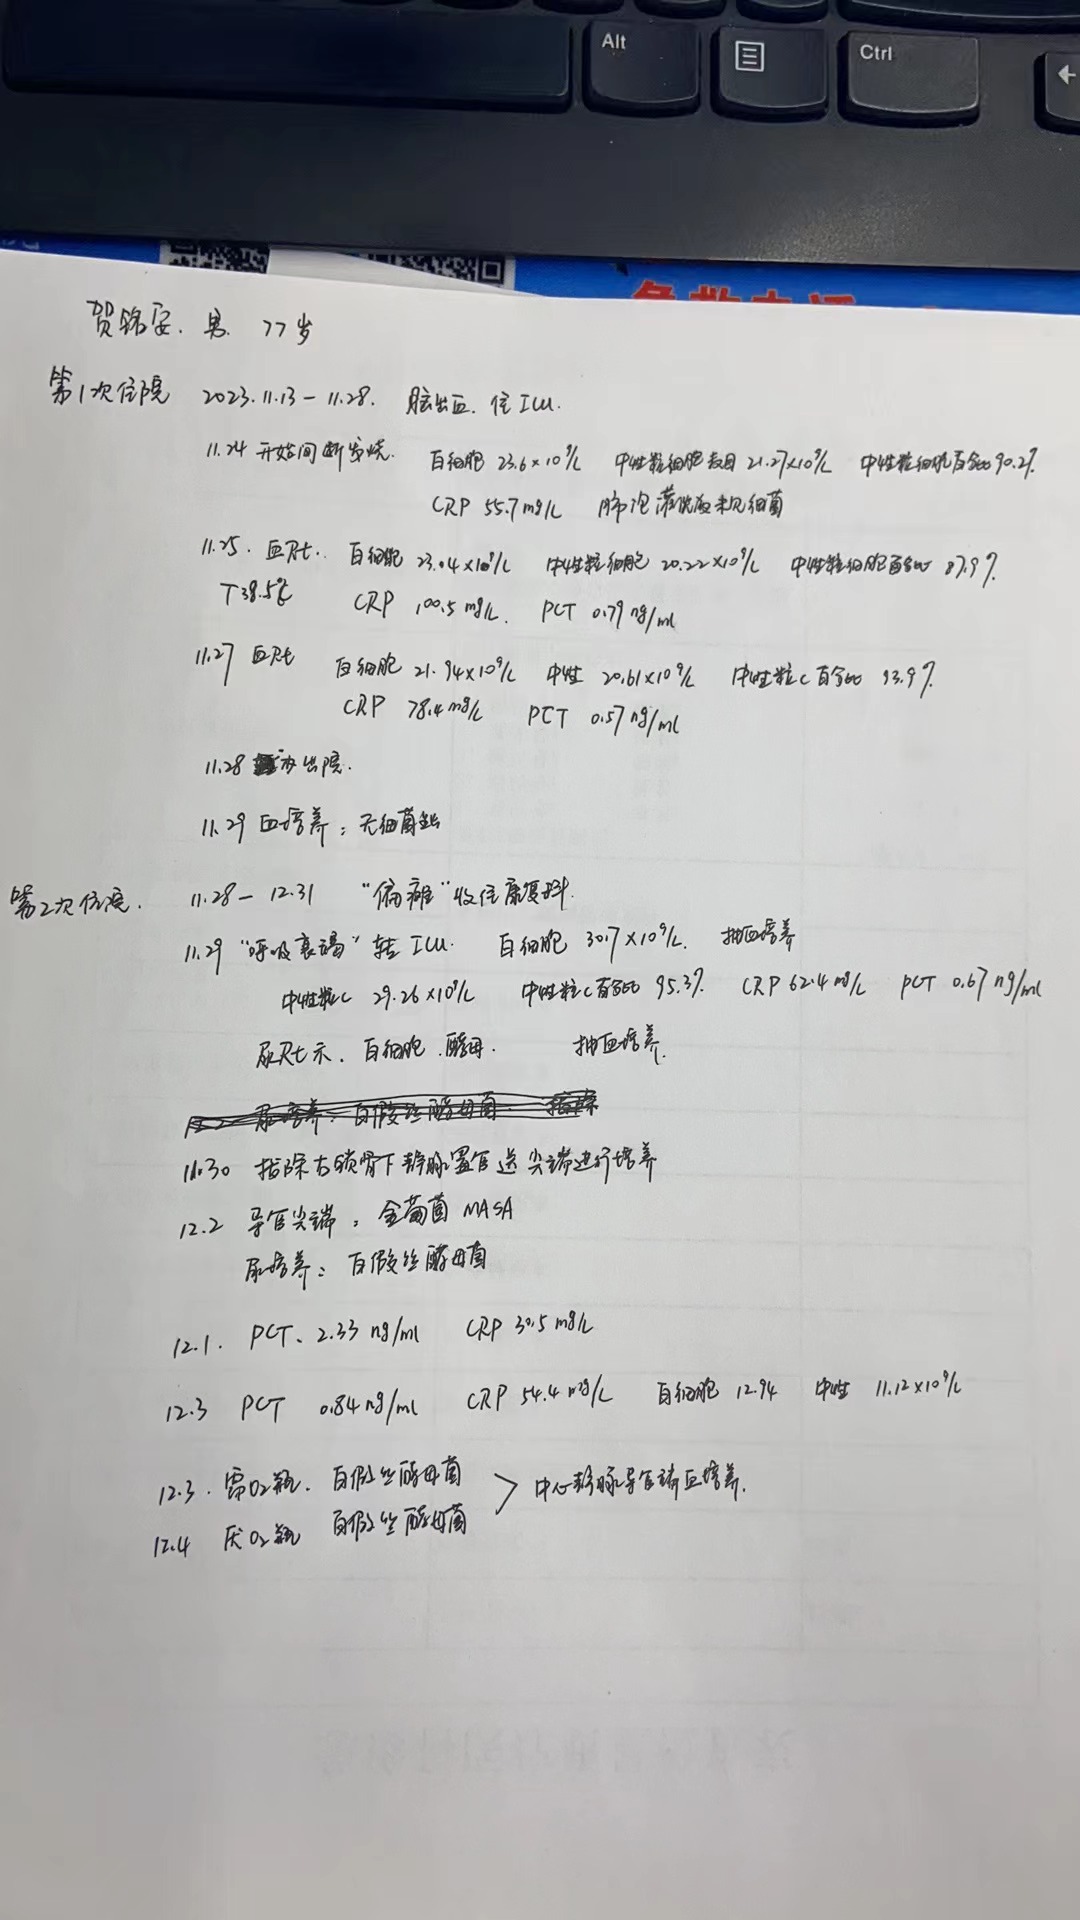 Alt
Ctrl
急救电话
贺锦安. 男. 77岁
第1次住院 2023.11.13-11.28. 脑出血. 住ICU.
11.24 开始间断发烧. 白细胞 23.6×10⁹/L 中性粒细胞数目 21.27×10⁹/L 中性粒细胞百分比 90.2%
CRP 55.7mg/L 肺泡灌洗液未见细菌
11.25. 血Rt. 白细胞 23.04×10⁹/L 中性粒细胞 20.22×10⁹/L 中性粒细胞百分比 87.9%
T38.5℃ CRP 100.5mg/L. PCT 0.79ng/ml
11.27 血Rt 白细胞 21.94×10⁹/L 中性 20.61×10⁹/L 中性粒C百分比 93.9%
CRP 78.4mg/L PCT 0.57ng/ml
11.28 办出院.
11.29 血培养: 无细菌生长
第2次住院. 11.28-12.31 "偏瘫"收住康复科.
11.29 "呼吸衰竭"转ICU. 白细胞 30.7×10⁹/L. 抽血培养
中性粒C 29.26×10⁹/L 中性粒C百分比 95.3% CRP 62.4mg/L PCT 0.67ng/ml
尿Rt示. 白细胞. 酵母. 抽血培养.
12.2 尿培养: 白假丝酵母菌. 拔除
11.30 拔除右锁骨下静脉置管送尖端进行培养
12.2 导管尖端: 金葡菌 MASA
尿培养: 白假丝酵母菌
12.1. PCT. 2.33ng/ml CRP 30.5mg/L
12.3 PCT 0.84ng/ml CRP 54.4mg/L 白细胞 12.94 中性 11.12×10⁹/L
12.3. 需O₂瓶. 白假丝酵母菌 > 中心静脉导管端血培养.
12.4 厌O₂瓶 白假丝酵母菌